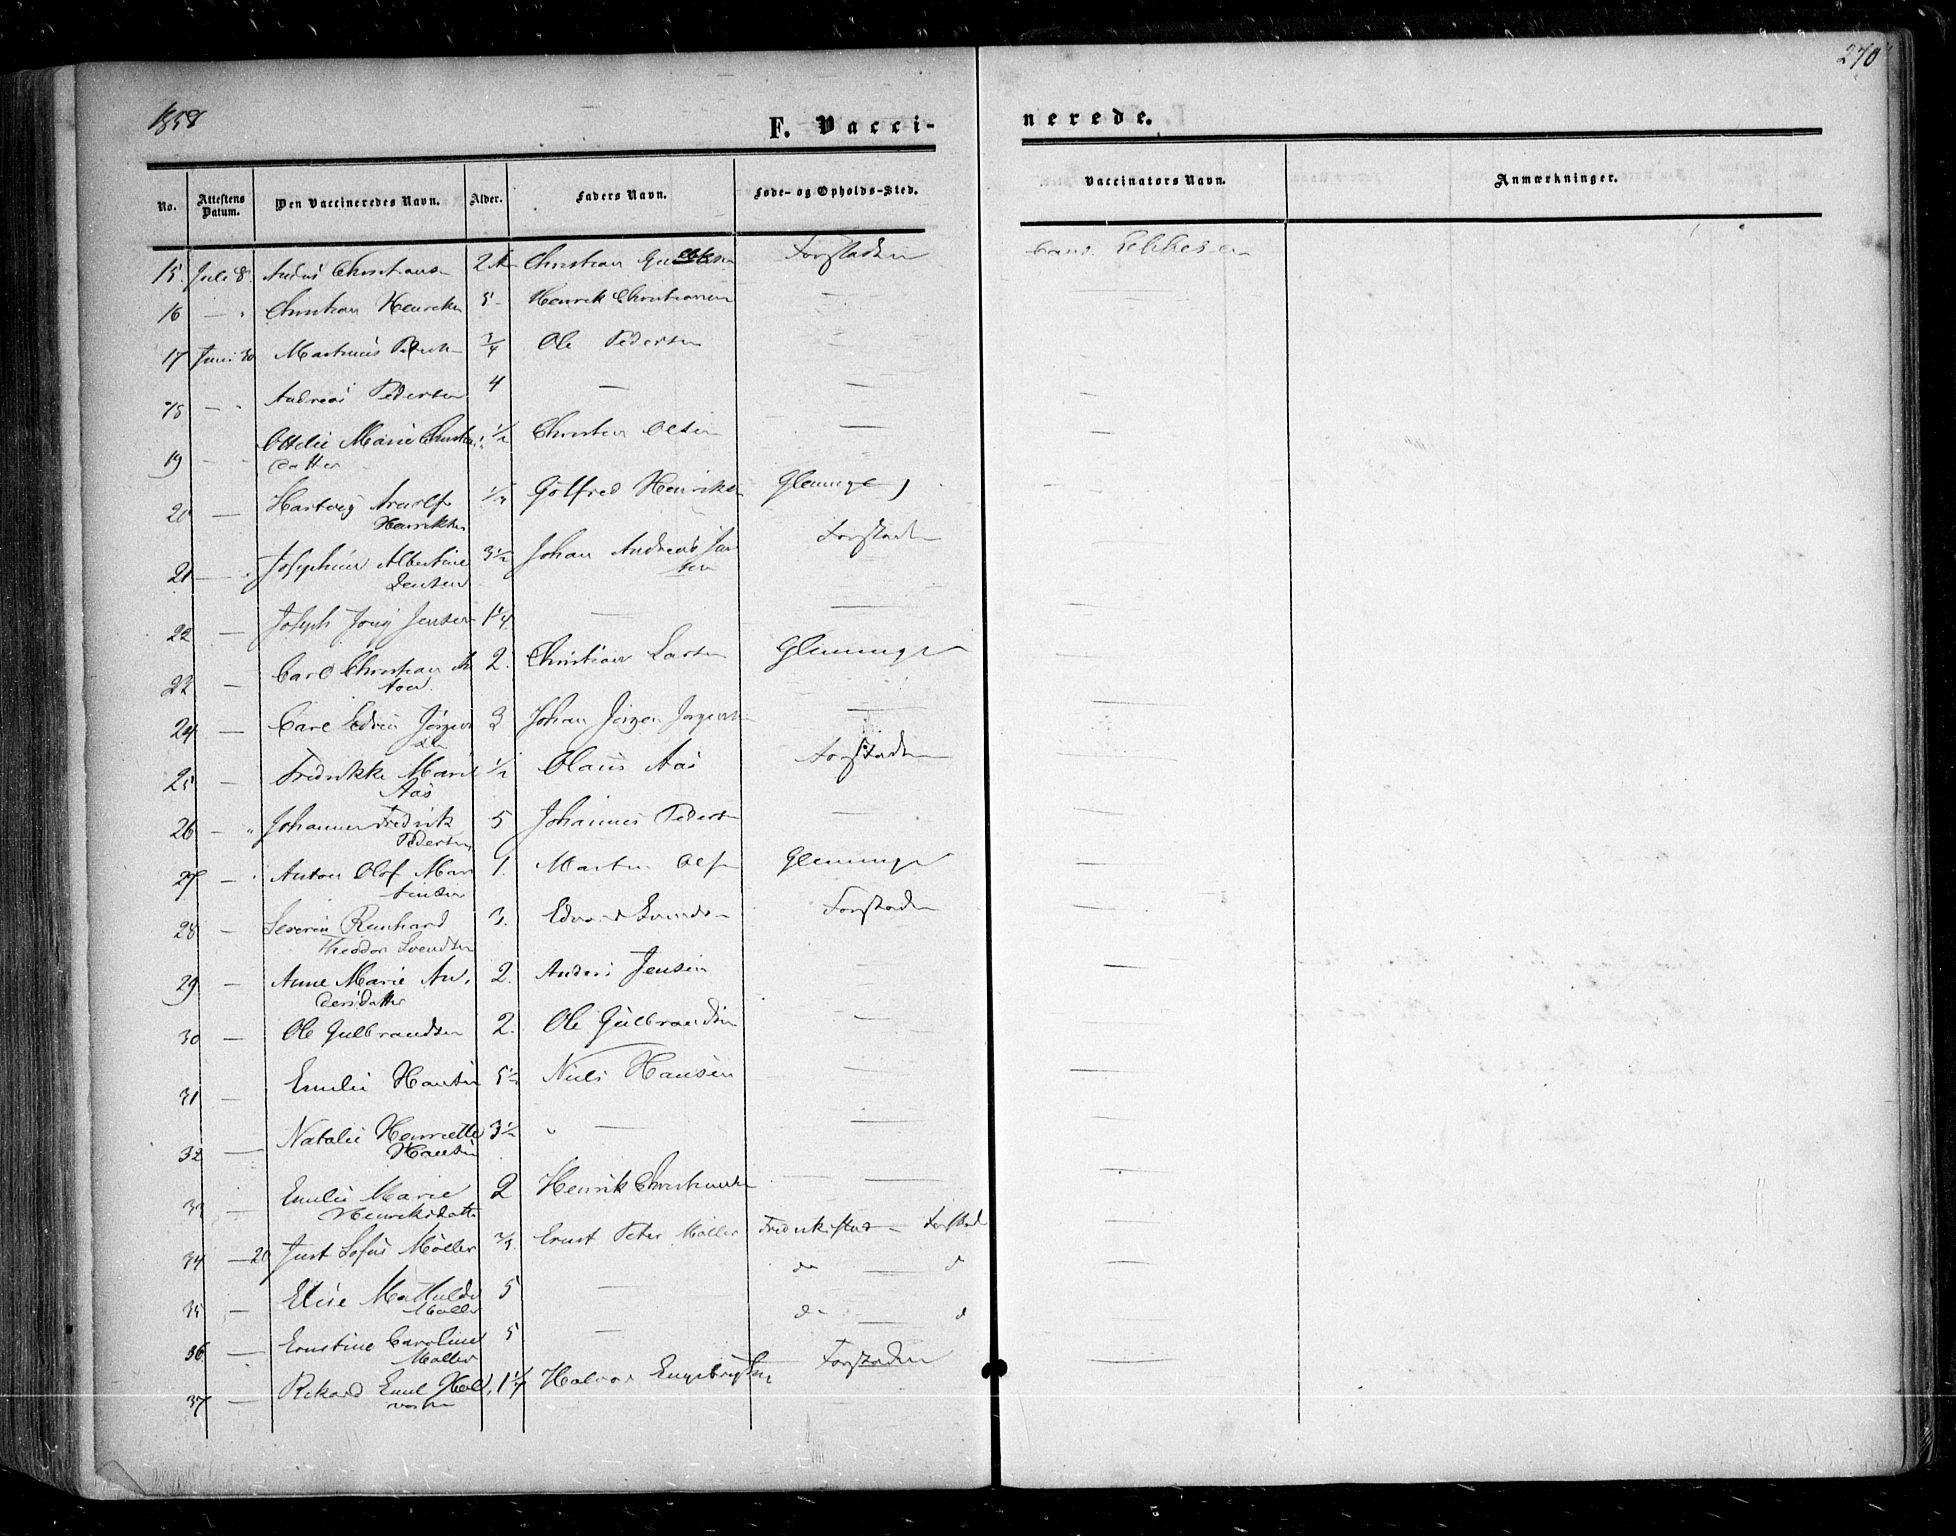 270
1858
F. Vacci-
nerede.
No. Attestens Datum. Den Vaccineredes Navn. Alder. Faders Navn. Føde- og Opholds-Sted. Vaccinators Navn. Anmærkninger.
15. Juli 8. 2 Christian Forstaden Cand.
16 — Christian 5 - Henrik Christiansen —
17 Juni 30 Martinus 3/4 Ole Pedersen —
18 — Andreas Pedersen 4 — —
19 — Ottilie Marie 1/2 Christian Olsen —
datter
20 — Hartvig Gotfred Henriksen Glemminge
Henriksen Forstaden
21 — Josephine Albertine 3 1/2 Johan Andreas Jen
Jensen sen
22 — Joseph Jensen 1 1/4 — —
23 — Carl Christian 2. Christian Larsen Glemminge
24 — Carl Edvin Jørgen 3 Johan Jørgen Jørgensen —
sen
25 — Fredrikke Marie 1/2 Olaus Aas Forstaden
Aas
26 — Johannes Fredrik 5 Johannes Pedersen —
Pedersen
27 — Anton Olof Mar 1. Martin Olsen Glemminge
tinsen
28 — Severin Reinhard 3. Edvard Svendsen Forstaden
Theodor Svendsen
29 — Anne Marie An, 2. Anders Jensen —
dersdatter
30 — Ole Gulbrandsen 2. Ole Gulbrandsen —
31 — Emilie Hansen 5 1/2 Niels Hansen —
32 — Natalie Henriette 3 1/2 " — —
Hansen
33 — Emilie Marie 2 Henrik Christiansen —
Henriksdatter
34 — 20 Just Sofus Møller 3/4 Ernst Peter Møller Fredrikstad — Forstad
35 — Elise Mathilde 5 — do — d
Møller
36 — Ernstine Caroline 5 — do — d
Møller
37 — Rikard Emil Hal, 1 1/4 Halvor Engebrigtsen Forstaden —
vorsen